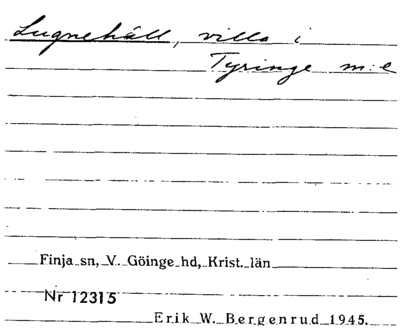 Lugnehäll, villa i
Tyringe m:e
Finja sn, V. Göinge hd, Krist. län
Nr 12315
Erik W. Bergenrud 1945.